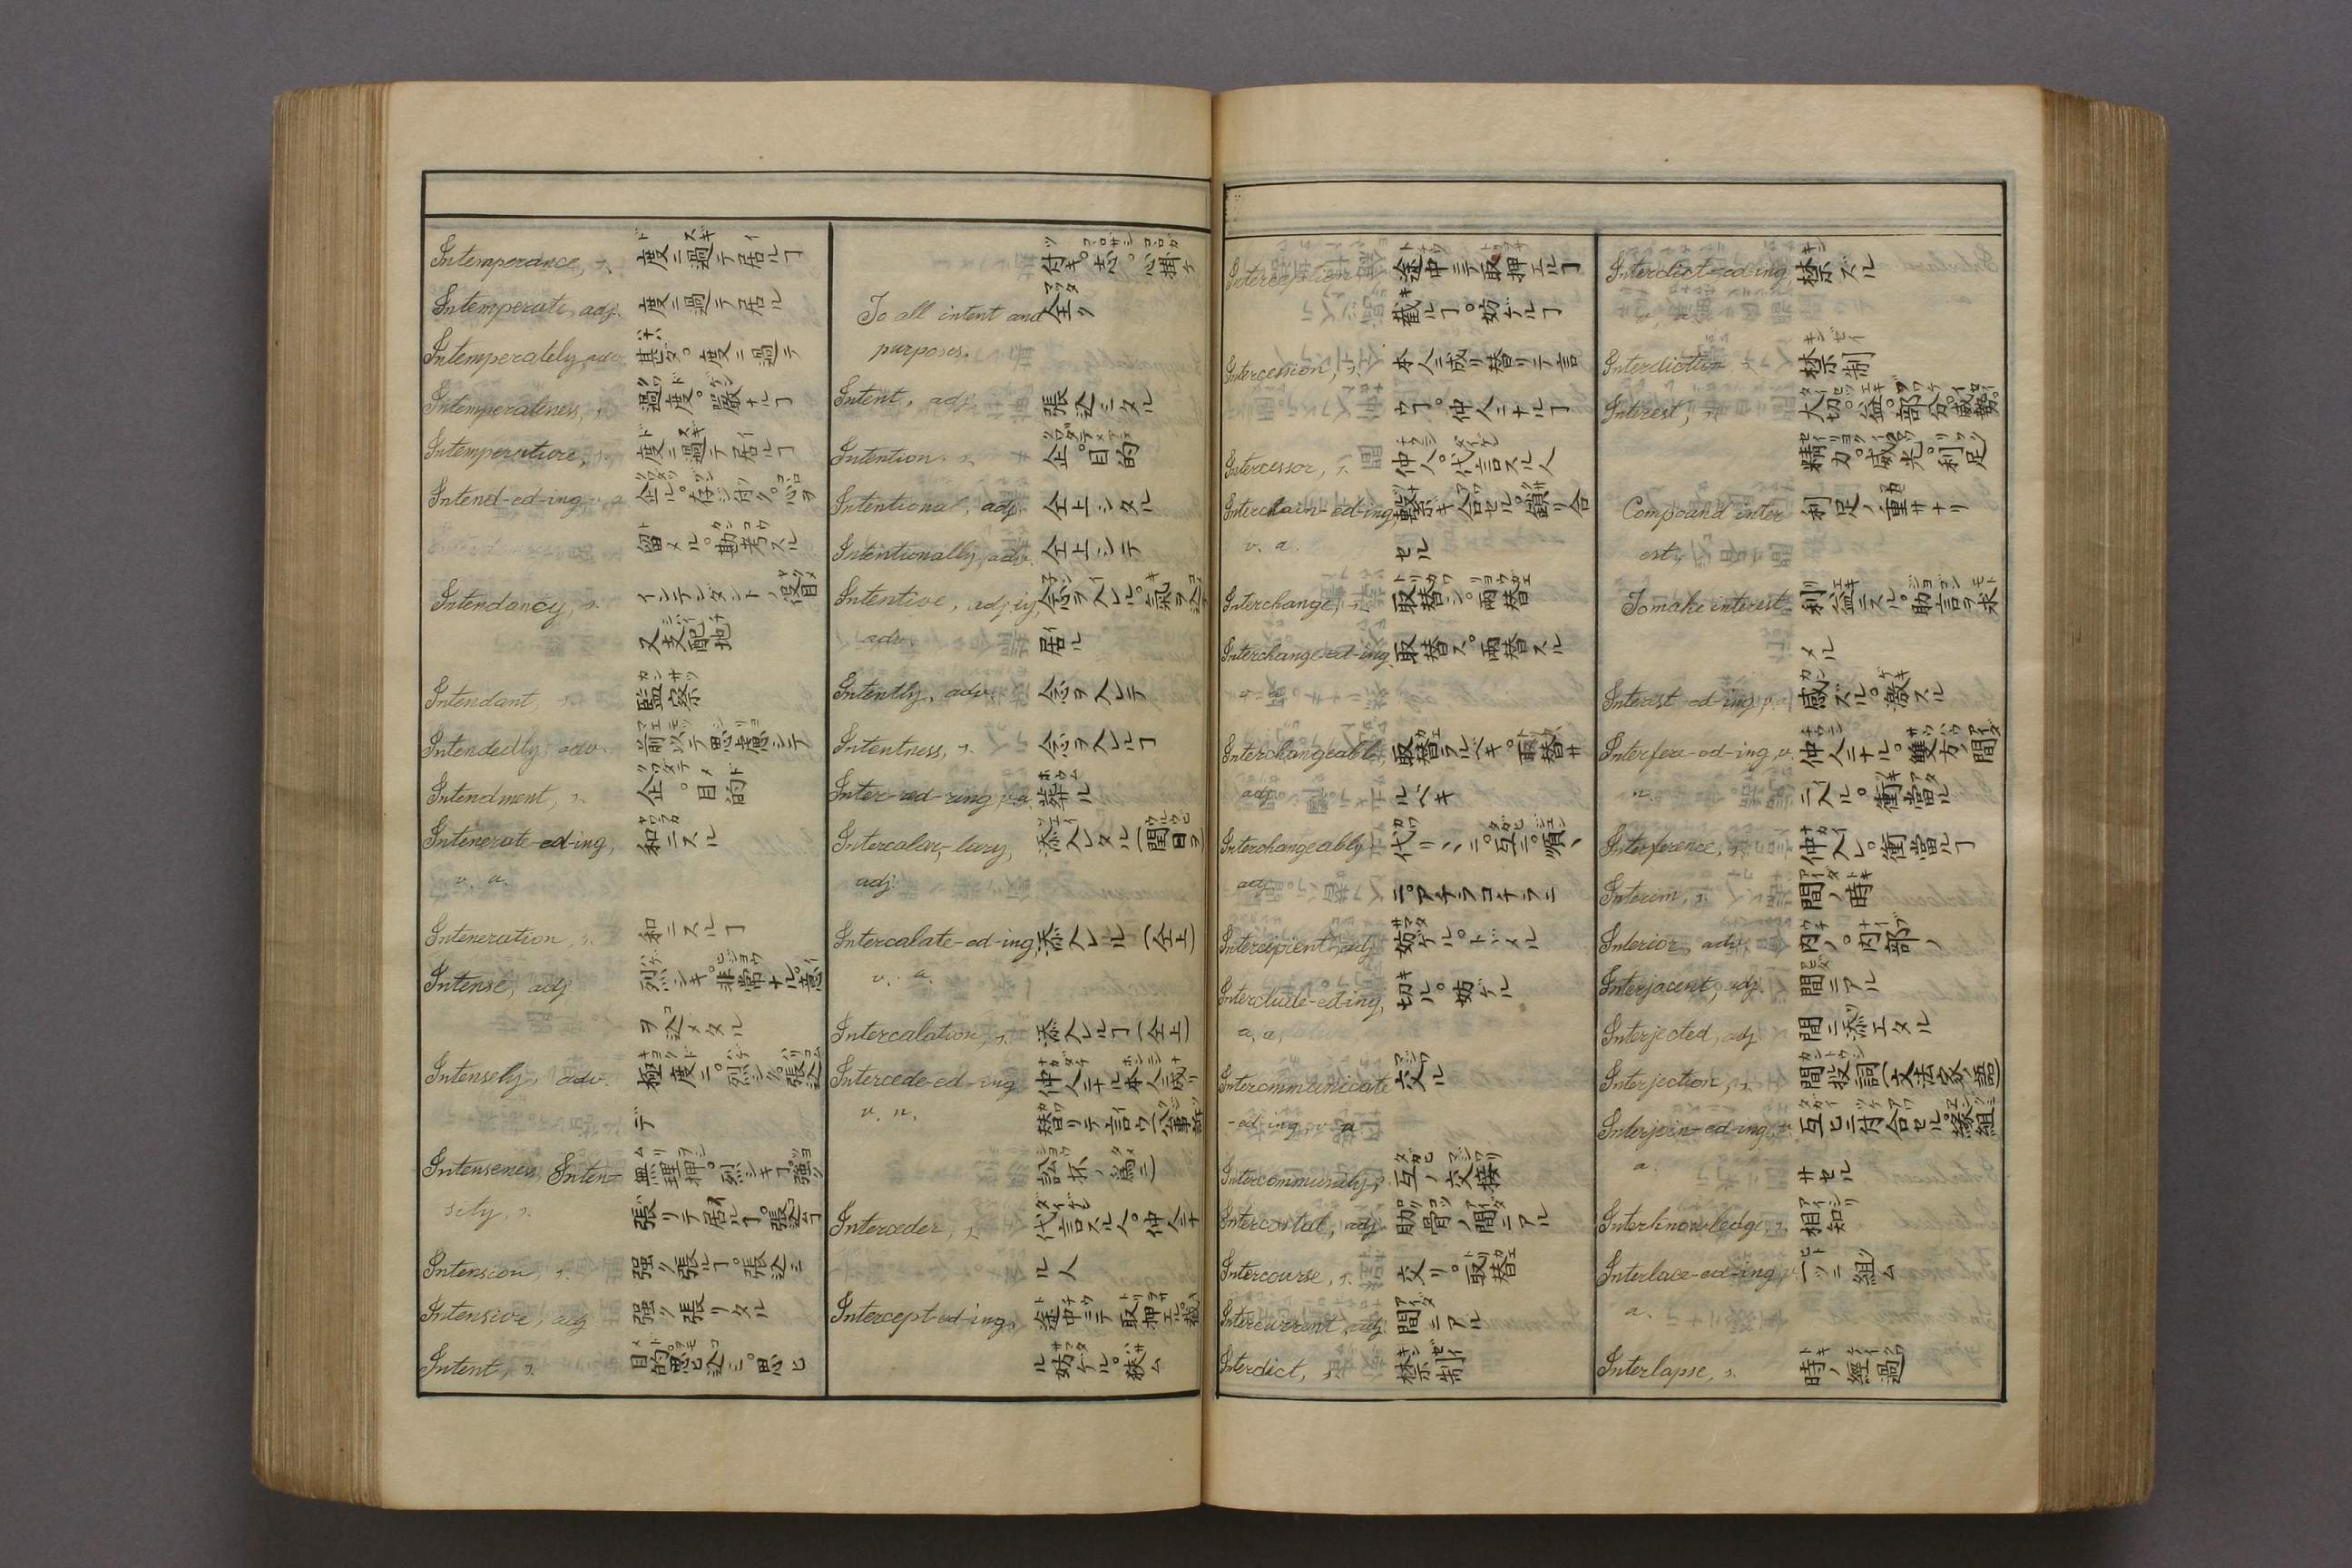 Intemperance, s. 度ニ過テ居ルヿ
Intemperate, adj. 度ニ過テ居ル
Intemperately, adv. 甚タ。度ニ過テ
Intemperateness, s. 過度。嚴ナルヿ
Intemperature, s. 度ニ過テ居ルヿ
Intend-ed-ing, v. a. 企ル。存シ付ク。心ヲ
留メル。勘考スル
Intendancy, s. インテンダントノ役目
又支配地
Intendant, s. 監察
Intendedly, adv. 前以テ思慮シテ
Intendment, s. 企。目的
Intenerate-ed-ing, 和ニスル
v. a.
Inteneration, s. 和ニスルヿ
Intense, adj. 烈シキ。非常ナル。意
ヲ込メタル
Intensely, adv. 極度ニ。烈シク。張込
デ
Intenseness, Inten- 無理押。烈シキヿ。强ク
sity, s. 張リテ居ルヿ。張込ムヿ
Intension, s. 强ク張ルヿ。張込ミ
Intensive, adj. 强ク張リタル
Intent, s. 目的。思ヒ込ミ。思ヒ
付キ。志。心掛ケ
To all intent and 全ク
purposes.
Intent, adj. 張込ミタル
Intention, s. 企。目的
Intentional, adj. 仝上シタル
Intentionally, adv. 仝上シテ
Intentive, adj. ly, 念ヲ入レル。氣ヲ込テ
adv. 居ル
Intently, adv. 念ヲ入レテ
Intentness, s. 念ヲ入レルヿ
Inter-ed-ring, v. a. 葬ル
Intercalar,-lary, 添入レタル(閏日ヲ)
adj.
Intercalate-ed-ing, 添入レル(仝上)
v. a.
Intercalation, s. 添入レルヿ(仝上)
Intercede-ed-ing 仲人ニナル本人ニ成リ
v. n. 替リテ言ウ(公事訴
訟抔ノ爲ニ)
Interceder, s. 代言スル人。仲人ニナ
ル人
Intercept-ed-ing, 途中ニテ取押エル。截
ル妨ケル。狹ム
Interception 途中ニテ取押エルヿ
截ルヿ。妨ケルヿ
Intercession, s. 本人ニ成リ替リテ言
ウヿ。仲人ニナルヿ
Intercessor, s. 仲人。代言スル人
Interchain-ed-ing, 繫キ合セル。鎖リ合
v. a. セル
Interchange, s. 取替シ。兩替
Interchange-ed-ing, 取替ス。兩替スル
v. a.
Interchangeable, 取替ラルベキ。兩替サ
adj. ルベキ
Interchangeably 代リヽヽニ。互ニ。順ヽ
adj. ニアチラコチラニ
Intercipient, adj. 妨ケル。トメル
Interclude-ed-ing, 切ル。妨ケル
a, a,
Intercommunicate 交ル
-ed-ing, v. a.
Intercommunity, s. 互ノ交接
Intercostal, adj. 肋骨ノ間ニアル
Intercourse, s. 交リ。取替
Intercurrent, adj. 間ニアル
Interdict, s. 禁制
Interdict-ed-ing, 禁ズル
Interdiction 禁制
Interest, s. 大切。益。部分。威勢。
精力。威光。利足
Compound inter 利足ノ重サナリ
est,
To make interest, 利益ニスル。助言ヲ求
メル
Interest-ed-ing, v. a. 感ズル。激スル
Interfere-ed-ing, v. 仲人ニナル。雙方ノ間
n. ニ入ル。衝當ル
Interference, s. 仲入レ。衝當ルヿ
Interim, s. 間ノ時
Interior, adv. 内ノ。内部ノ
Interjacent, adj. 間ニアル
Interjected, adj. 間ニ添エタル
Interjection, s. 間投詞(文法家ノ語)
Interjoin-ed-ing, v. 互ヒニ付合セル。緣組
a. サセル
Interknowledge, s. 相知
Interlace-ed-ing, v. 一ツニ組ム
a.
Interlapse, s. 時ノ經過